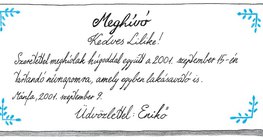 Meghívó
Kedves Lilike!
Szeretettel meghívlak húgoddal együtt a 2001. szeptember 15-én
tartandó névnapomra, amely egyben lakásavató is.
Mánfa, 2001. szeptember 9.
Üdvözlettel: Enikő